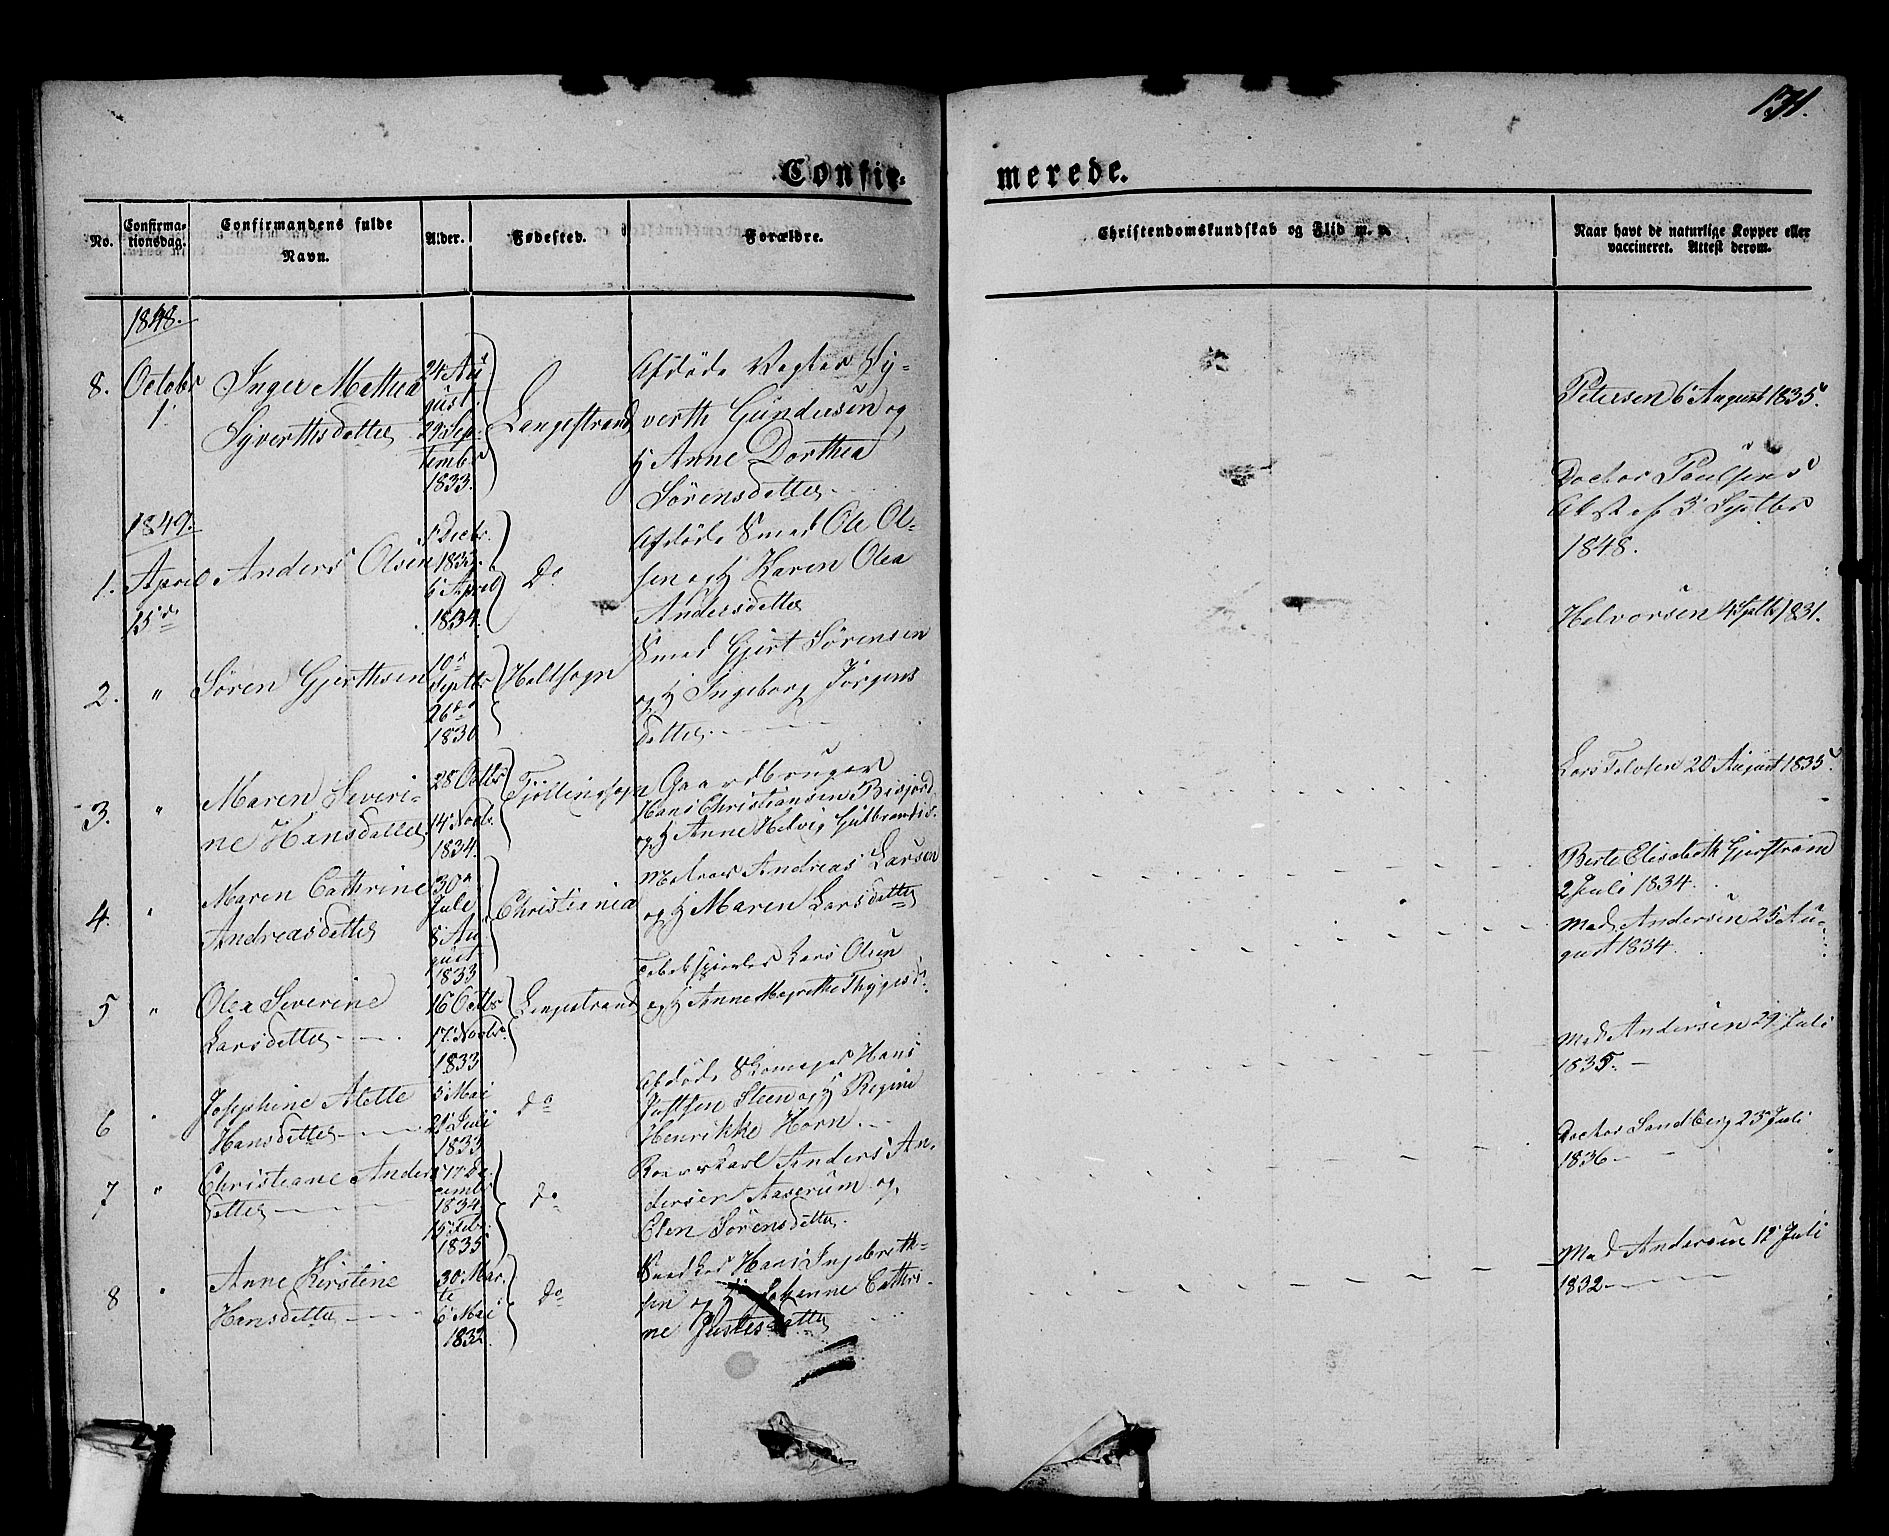 131.
Confir-
merede.
No.
Confirma-
tionsdag.
Confirmandens fulde
Navn.
Alder.
Fødested.
Forældre.
Christendomskundskab og Flid m. v.
Naar havt de naturlige Kopper eller
vaccineret. Attest derom.
1848.
8. Octobr
1.
Inger Mathea
Syverthsdatter
24 Au
gust
29 Sep
tember
1833.
Langestrand
Afdøde Vegter Sy-
verth Gundersen og
H Anne Dorthea
Sørensdatter
Petersen 6 August 1835.
Doctor Paulsens
Attest af 3 Septbr
1848.
1849.
1. April
15de
Anders Olsen
5 Decbr.
1833.
6 April
1834.
Do
Afdøde Smed Ole Ol-
sen og H Karen Olea
Andersdatter
Halvorsen 4 Septbr 1831.
2. "
Søren Gjerthsen
10
Septbr
26de
1830
Holtsogn
Smed Gjert Sørensen
og H Ingeborg Jørgens
datter
Lars Tolvsen 20 August 1835.
3. "
Maren Severi-
ne Hansdatter
28 Octbr
14 Novbr.
1834.
Tjøllingsogn
Gaardbruger
Hans Christiansen
og H Anne Helvig Gulbrandsd.
Berte Elisabeth
2 Juli 1834.
4. "
Maren Cathrine
Andreasdatter
30
Juli
8 Au
gust
1833
Christiania
Andreas Larsen
og H Maren Larsdatter
Mad. Andersen 25 Au-
gust 1834.
5 "
Olea Severine
Larsdatter
16 Octbr
17 Novbr.
1833
Langestrand
Tobakspinder Lars Olsen
og H Anne Magrethe Thygesd.
Mad Andersen 29 Juli
1835.
6 "
Josephine Alette
Hansdatter
5 Mai
21 Juli
1833
Do
Afdøde Skomager Hans
Justsen Steen og H Regine
Henrikke Horn.
Doctor Sandberg 23 Juli
1836
7 "
Christiane Anders
datter
17 De
cembr
1834
15 Febr
1835
Do
Anders An-
dersen Aaserum og
Elen Sørensdatter.
Mad Andersen 12 Juli
1832
8 "
Anne Kirstine
Hansdatter
30 Mar
ts
6 Mai
1832.
Do
Snedker Hans Ingebreth-
sen og H Johanne Cathri-
ne Justesdatter